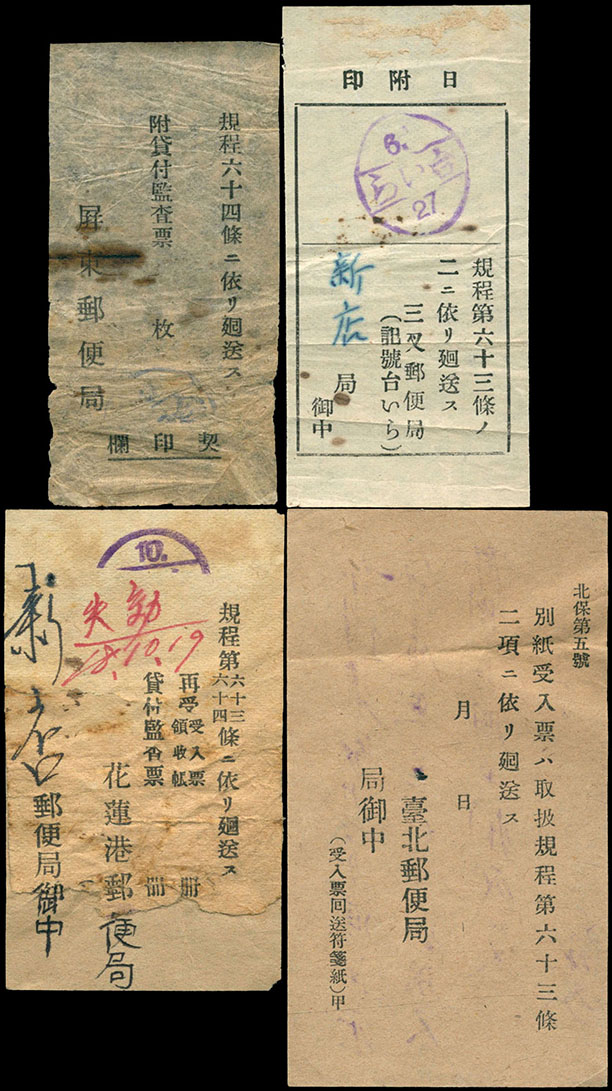 規程六十四條ニ依リ廻送ス
附貸付監査票 枚
屏東郵便局
契印欄
日附印
6.
い
27
規程第六十三條ノ
二ニ依リ廻送ス
三叉郵便局
(記號台いら)
新店 局
御中
10.
失効
18.10.19
規程第六十三 六十四條ニ依リ廻送ス
再受受入票 冊
領收帳
貸付監査票 冊
花蓮港郵便局
新
郵便局御中
北保第五號
別紙受入票ハ取扱規程第六十三條
二項ニ依リ廻送ス
月 日
臺北郵便局
局御中
(受入票回送符箋紙)甲